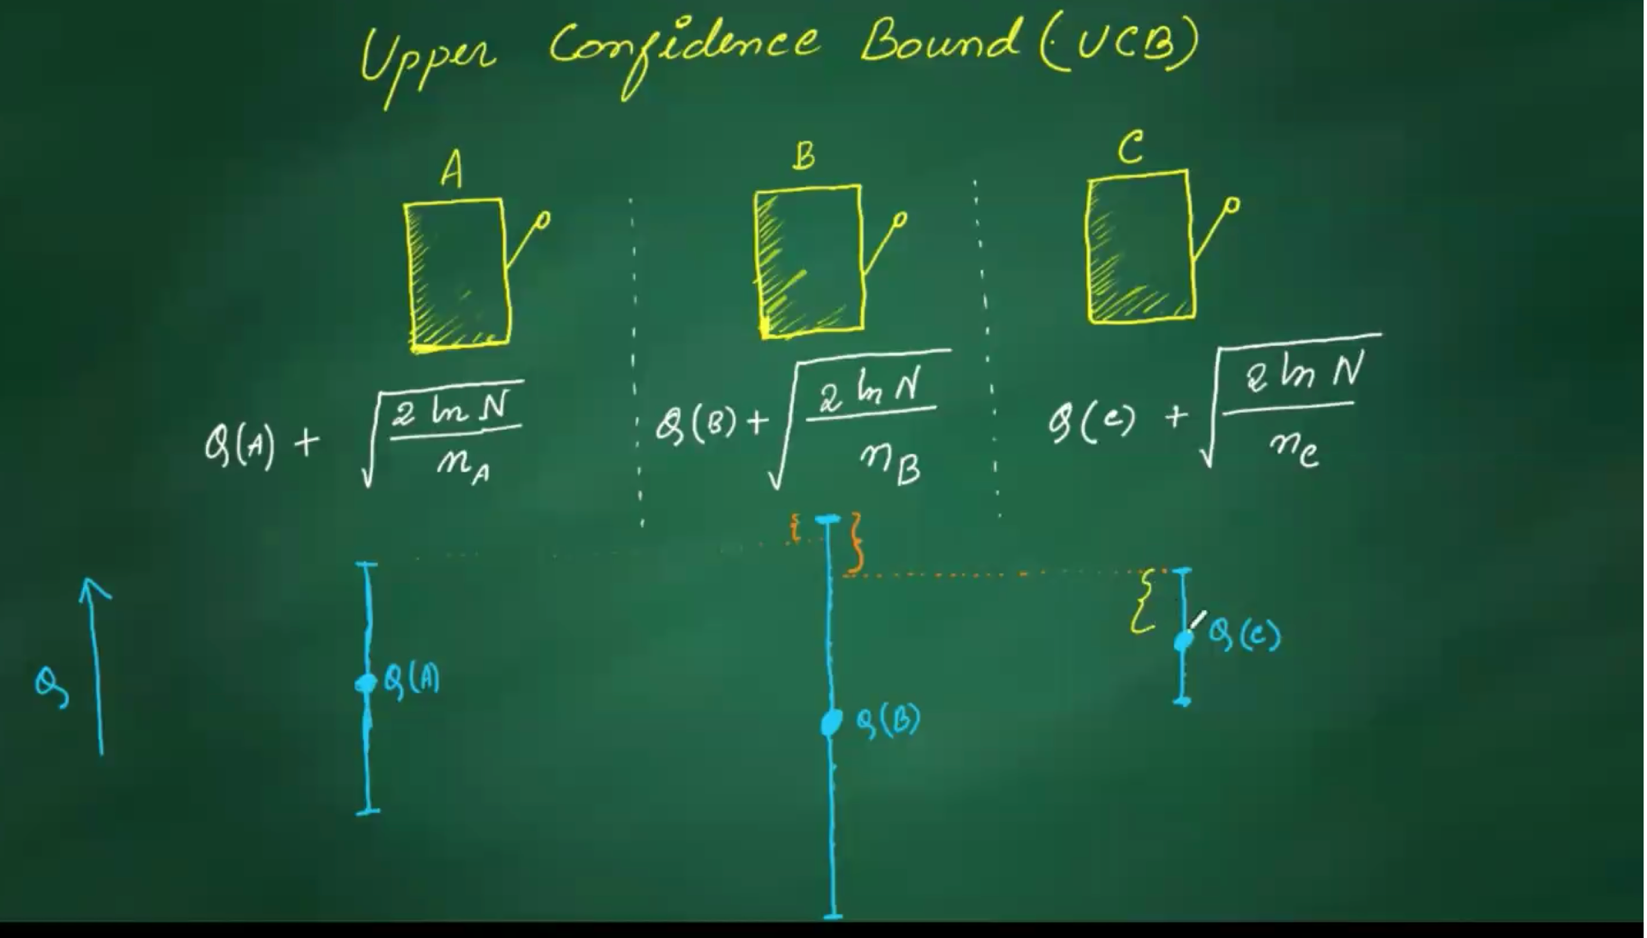 Upper Confidence Bound (UCB)
A B C
Q(A) + √(2 ln N / n_A) Q(B) + √(2 ln N / n_B) Q(C) + √(2 ln N / n_C)
Q(C)
Q Q(A)
Q(B)